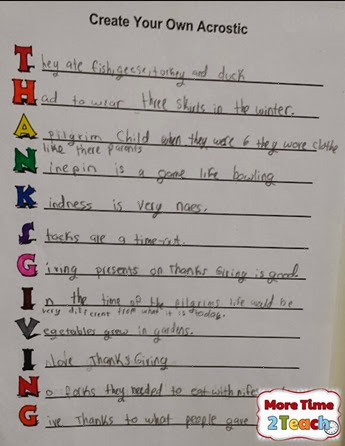 Create Your Own Acrostic
They ate fish, geese, torkey and duck
Had to wear three skurts in the winter.
A pilgrim child when they were 6 they wore clothe
like there parents
Ninepin is a game life bowling
Kindness is very naes.
Stocks are a time-out.
Giving presents on Thanks Giving is good.
In the time of the pilgrims life would be
very different from what it is today.
Vegetables grew in gardens.
I love Thanks Giving
No forks they needed to eat with nifes
Give Thanks to what people gave
More Time
2 Teach